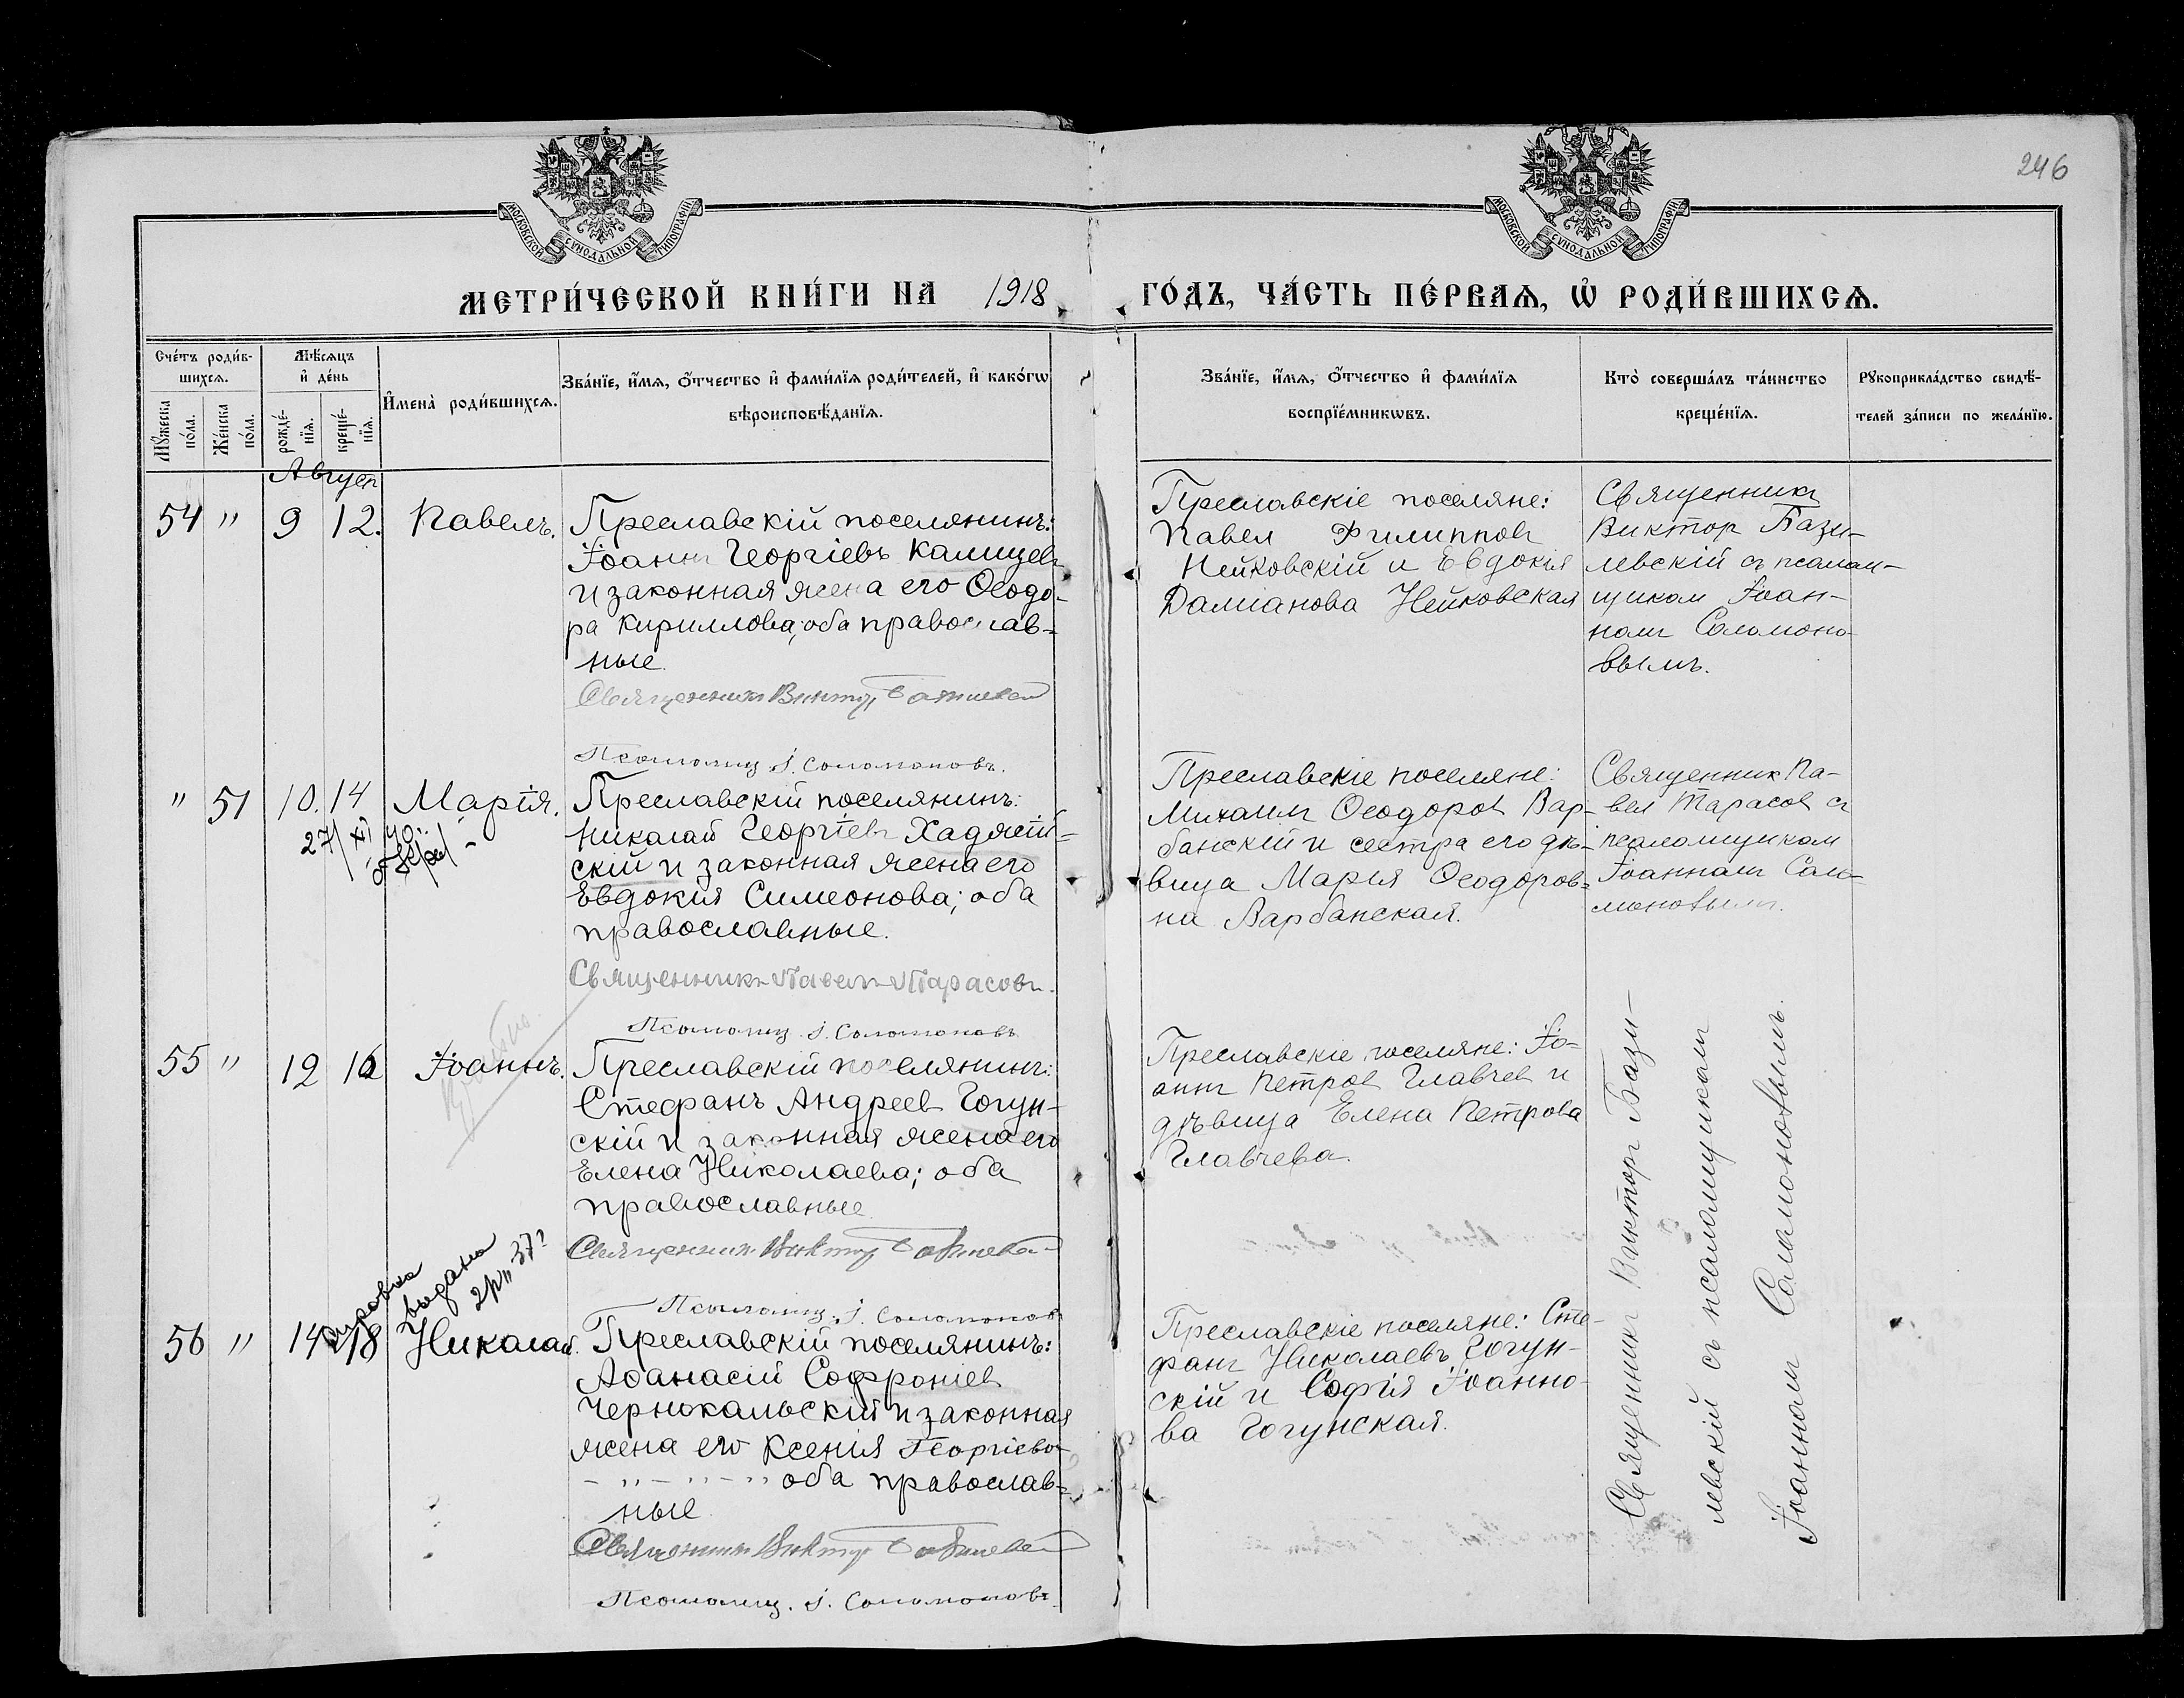 246
МОСКОВСКОЙ СУНОДАЛЬНОЙ ТИПОГРАФІИ
МОСКОВСКОЙ СУНОДАЛЬНОЙ ТИПОГРАФІИ
МЕТРИ́ЧЕСКОЙ КНИ́ГИ НА 1918 ГО́ДЪ, ЧА́СТЬ ПЕ́РВАѦ, Ѡ҆ РОДИ́ВШИХСѦ.
Сче́тъ роди́в-
шихсѧ.
Мꙋ́жеска
по́ла.
Же́нска
по́ла.
Мѣ́сѧцъ
и҆ де́нь
рожде́-
нїѧ.
креще́-
нїѧ.
И҆мена̀ роди́вшихсѧ.
Зва́нїе, и҆́мѧ, ѻ҆́тчество и҆ фами́лїѧ роди́телей, и҆ како́гѡ
вѣроисповѣ́данїѧ.
Зва́нїе, и҆́мѧ, ѻ҆́тчество и҆ фами́лїѧ
воспрїе́мникѡвъ.
Кто̀ соверша́лъ та́инство
креще́нїѧ.
Рꙋкоприкла́дство свидѣ́-
телей за́писи по жела́нїю.
Август
54 " 9 12. Павелъ.
Преславскій поселянинъ:
Іоаннъ Георгіевъ Калицевъ
и законная жена его Ѳеодо-
ра Кириллова; оба православ-
ные.
Священникъ Виктор Базилевскій
Псаломщ. І. Соломоновъ.
Преславскіе поселяне:
Павел Филиппов
Нейковскій и Евдокія
Даміанова Нейковская
Священникъ
Виктор Бази-
левскій съ псалом-
щиком Іоан-
ном Соломоно-
вымъ.
" 51 10. 14 Марія.
27/XII 40.
Преславскій поселянинъ:
Николай Георгіевъ Хаджій-
скій и законная жена его
Евдокія Симеонова; оба
православные.
Священникъ Павелъ Тарасовъ.
Псаломщ. І. Соломоновъ
Преславскіе поселяне:
Михаилъ Ѳеодоров Вар-
банскій и сестра его дѣ-
вица Марія Ѳеодоров-
на Варбанская.
Священник Па-
вел Тарасов съ
псаломщиком
Іоанномъ Соло-
моновымъ.
55 " 12 16 Іоаннъ.
Преславскій поселянинъ:
Стефанъ Андреев Гогун-
скій и законная жена его
Елена Николаева; оба
православные
Священник Виктор Базилевскій
Псаломщ. І. Соломонов
Преславскіе поселяне: Іо-
аннъ Петров Главчев и
дѣвица Елена Петрова
Главчева.
выдана
2/IV 37?
56 " 14 18 Николай.
Преславскій поселянинъ:
Аѳанасій Софроніев
Чернокальскій и законная
жена его Ксенія Георгіева
- " - " - " оба православ-
ные
Священник Виктор Базилевскій
Псаломщ. І. Соломоновъ.
Преславскіе поселяне: Сте-
фанъ Николаевъ Гогун-
скій и Софія Іоанно-
ва Гогунская.
Священникъ Викторъ Бази-
левскій съ псаломщикомъ
Іоанномъ Соломоновымъ.